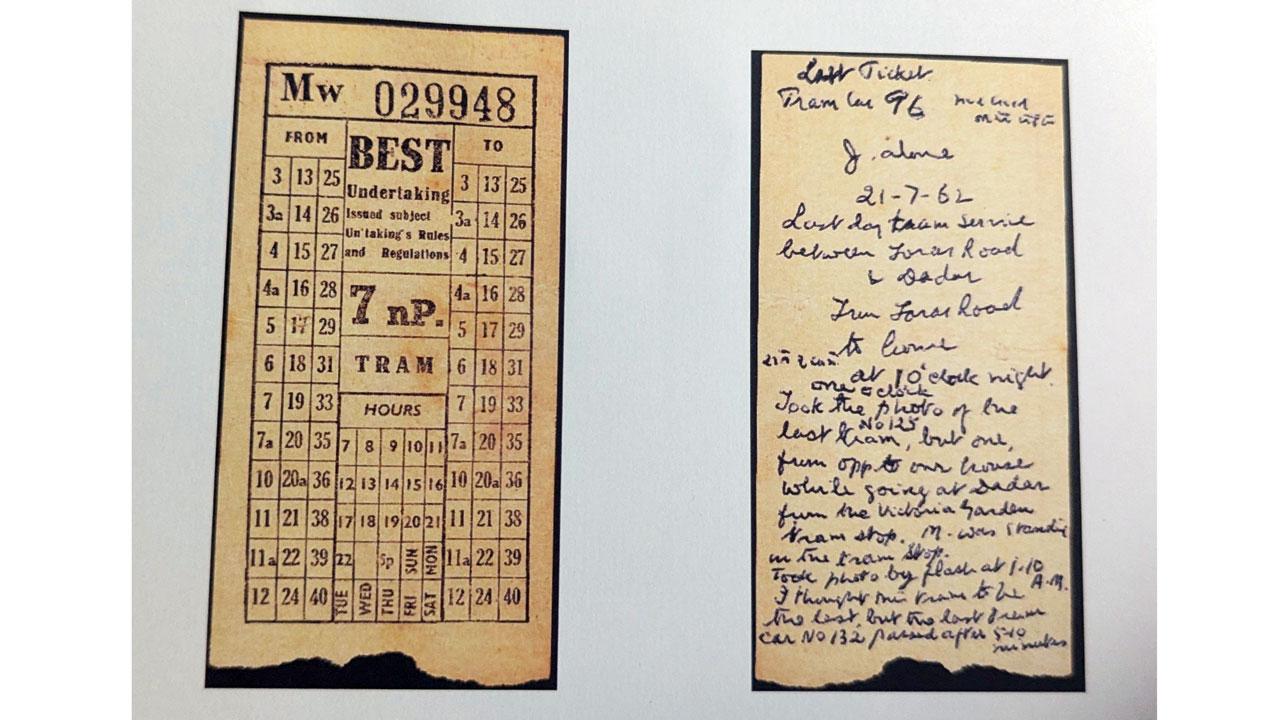 Mw 029948
FROM
3 13 25
3a 14 26
4 15 27
4a 16 28
5 17 29
6 18 31
7 19 33
7a 20 35
10 20a 36
11 21 38
11a 22 39
12 24 40
BEST
Undertaking
Issued subject
Un'taking's Rules
and Regulations
7 nP.
TRAM
HOURS
7 8 9 10 11
12 13 14 15 16
17 18 19 20 21
22 5p SUN MON
TUE WED THU FRI SAT
TO
3 13 25
3a 14 26
4 15 27
4a 16 28
5 17 29
6 18 31
7 19 33
7a 20 35
10 20a 36
11 21 38
11a 22 39
12 24 40
Last Ticket
Tram Car 96
J. alone
21-7-62
Last day tram service
between Foras Road
& Dadar
From Foras Road
to home
at 10 o'clock night.
one o'clock
Took the photo of the
No 125
last tram, but one,
from opp to our house
while going at Dadar
from the Victoria Garden
tram stop. M. was standing
in the tram stop.
Took photo by flash at 1-10
A.M.
I thought this tram to be
the last, but the last tram
car No 132 passed after 5-10
minutes